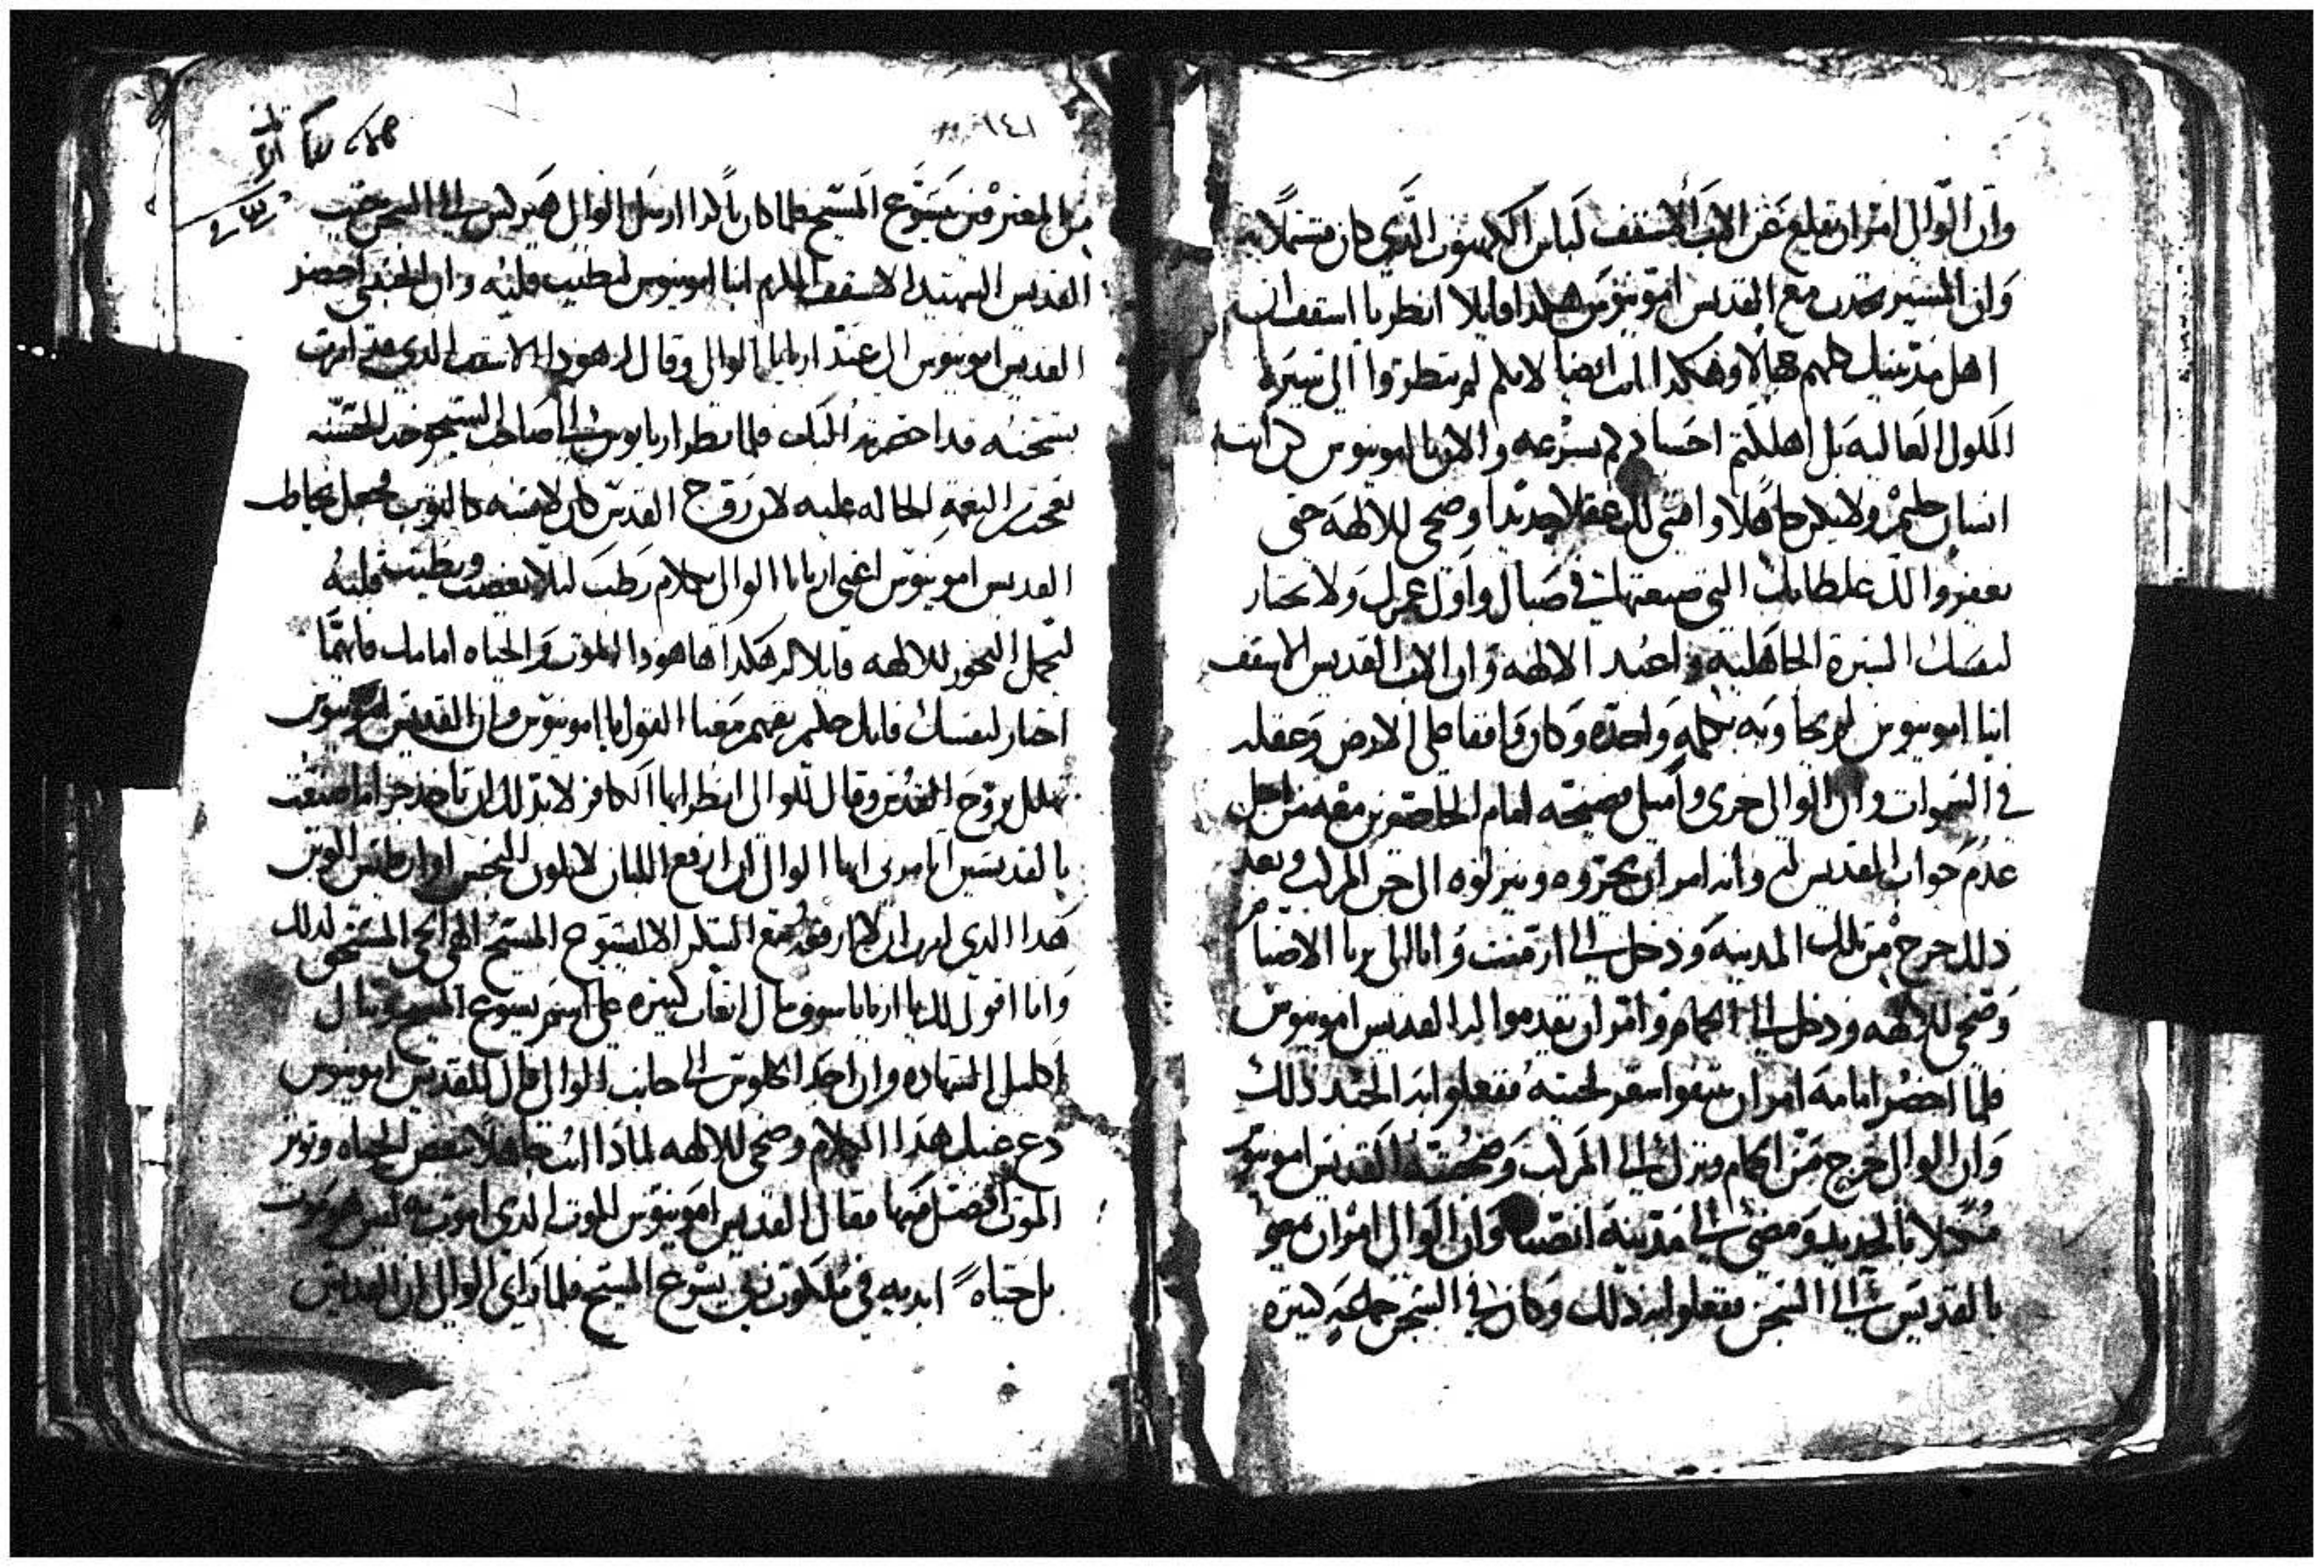 وان الوالي امر ان يقلع عن الاب الاسقف لباس الكهنوت الذي كان مشتملا به
وان المشير تحدث مع القديس امونيوس هكدا قايلا انظر يا اسقف ان
اهل مدينتك كلهم جهالا وهكدا انت ايضا لانكم لم تنظروا الى سيرة
الملوك العاليه بل اهلكتم اجسادكم بسرعه والان يا امونيوس كن انت
انسان حليم ولا تكن جاهلا واقتني لك عقلا جديدا وضحي للالهة حتى
يغفروا لك غلطاتك التي صنعتها في صباك واول عمرك ولا تختار
لنفسك السيرة الجاهليه واعبد الالهه وان الاب القديس الاسقف
انبا امونيوس لم يجاوبه بكلمه واحده وكان واقفا على الارض وعقله
في السموات وان الوالي خزي وامتلى فضيحته امام الحاضرين معه من اجل
عدم جواب القديس له وانه امر ان يجروه وينزلوه الى خن المركب وبعد
ذلك خرج من تلك المدينه ودخل الى ارمنت واتا الى بربا الاصنام
وضحى للالهه ودخل الى الحمام وامر ان يقدموا له القديس امونيوس
فلما احضر امامه امر ان ينتفوا شعر لحيته ففعلوا به الجند ذلك
وان الوالي خرج من الحمام ونزل الى المركب وصحبته القديس امونيوس
مكبلا بالحديد ومضى الى مدينة انصنا وان الوالي امر ان يمضوا
بالقديس الى السجن ففعلوا به ذلك وكان في السجن جماعه كثيره
١٤١
من المعترفين بيسوع المسيح فلما كان باكرا ارسل الوالي الى السجن
القديس الشهيد الاسقف المكرم انبا امونيوس ليطيب قلبه وان احضر
القديس امونيوس الى عند اريانا الوالي وقال له هودا الاسقف الذي امرت
بسجنه قد احضرته اليك فلما نظر اريانوس الى صاحب
النعمة الحاله عليه لان روح القدس كان فجعل يخاطب
القديس امونيوس اعني اريانا الوالي بكلام رطب ليلا يغضب ويطيب قلبه
ليحمل البخور للالهه قايلا له هكدا ها هودا الموت والحياه امامك فايهما
اختار لنفسك فانك حليم تفهم معنا القول يا امونيوس وان القديس امونيوس
تهلل بروح القدس وقال للوالي انظر ايها الكافر لابد لك ان تاخد جزا ما صنعت
بالقديسين اتامرني ايها الوالي ان ارفع اللبان
هدا الذي المسيح الهي الحي المستحق لذلك
وانا اقول لك يا اريانا سوف تنال اتعاب كثيره على اسم يسوع المسيح وتنال
اكليل الشهاده وان احد الجلوس الى جانب الوالي قال للقديس امونيوس
دع عنك هذا الكلام وضحي للالهه لمادا انت جاهلا تبغض الحياه وتوثر
الموت افضل منها فقال القديس امونيوس الموت الذي اموت به ليس هو موت
بل حياه ابديه في ملكوت ربي يسوع المسيح فلما راى الوالي ان القديس